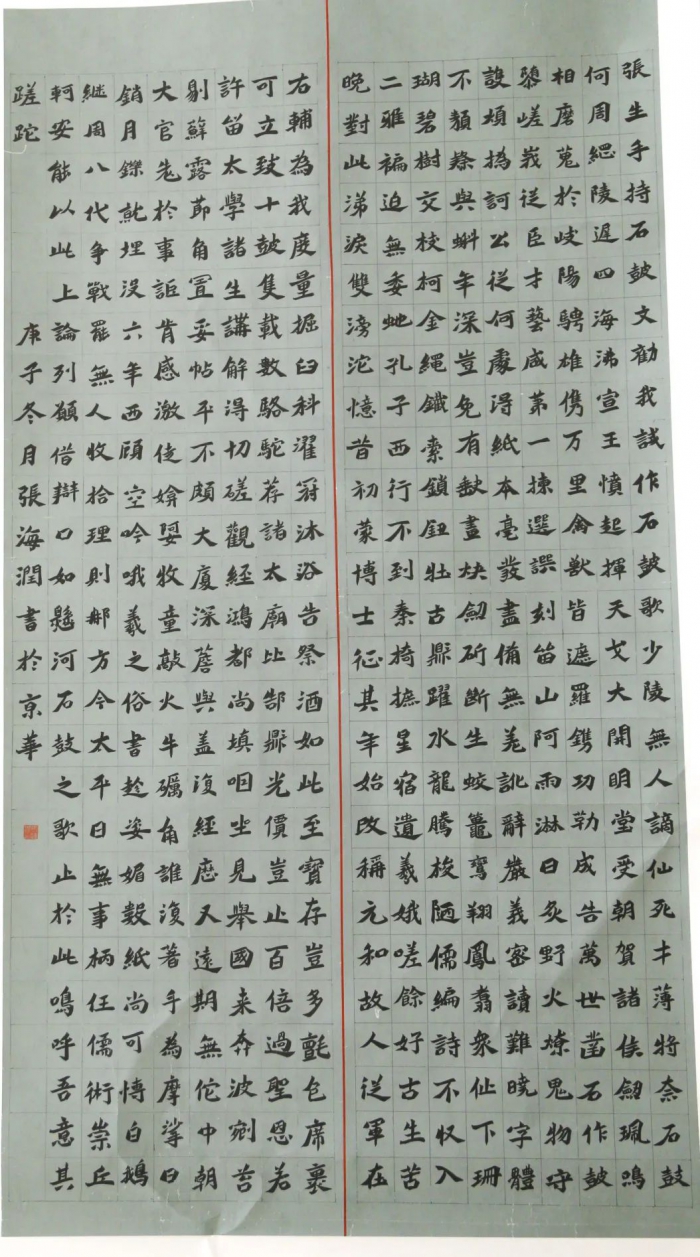 張生手持石鼓文勸我試作石鼓歌少陵無人謫仙死才薄將奈石鼓
何周綱陵遲四海沸宣王憤起揮天戈大開明堂受朝賀諸侯劍珮鳴
相磨蒐於岐陽騁雄儁万里禽獸皆遮羅鐫功勒成告萬世鑿石作鼓
隳嵯峩從臣才藝咸第一揀選譔刻留山阿雨淋日炙野火燎鬼物守
護煩撝訶公從何處得紙本毫髮盡備無差訛辭嚴義密讀難曉字體
不類隸與蝌年深豈免有缺畫快劍斫斷生蛟鼉鸞翔鳳翥衆仙下珊
瑚碧樹交枝柯金繩鐵索鎖鈕壯古鼎躍水龍騰梭陋儒編詩不収入
二雅褊迫無委虵孔子西行不到秦掎摭星宿遺羲娥嗟餘好古生苦
晚對此涕淚雙滂沱憶昔初蒙博士征其年始改稱元和故人從軍在
右輔為我度量掘臼科濯冠沐浴告祭酒如此至寶存豈多氈包席裹
可立致十鼓隻載數駱駝荐諸太廟比郜鼎光價豈止百倍過聖恩若
許留太學諸生講解得切磋觀經鴻都尚填咽坐見舉國来奔波剜苔
剔蘚露節角置妥帖平不頗大廈深簷與盖復經歷久遠期無佗中朝
大官老於事詎肯感激徒媕婀牧童敲火牛礪角誰復著手為摩挲日
銷月鑠就埋沒六年西顧空吟哦羲之俗書趁姿媚數紙尚可博白鵝
継周八代争戰罷無人收拾理則那方今太平日無事柄任儒術崇丘
軻安能以此上論列願借辯口如懸河石鼓之歌止於此嗚呼吾意其
蹉跎 庚子冬月張海潤書於京華